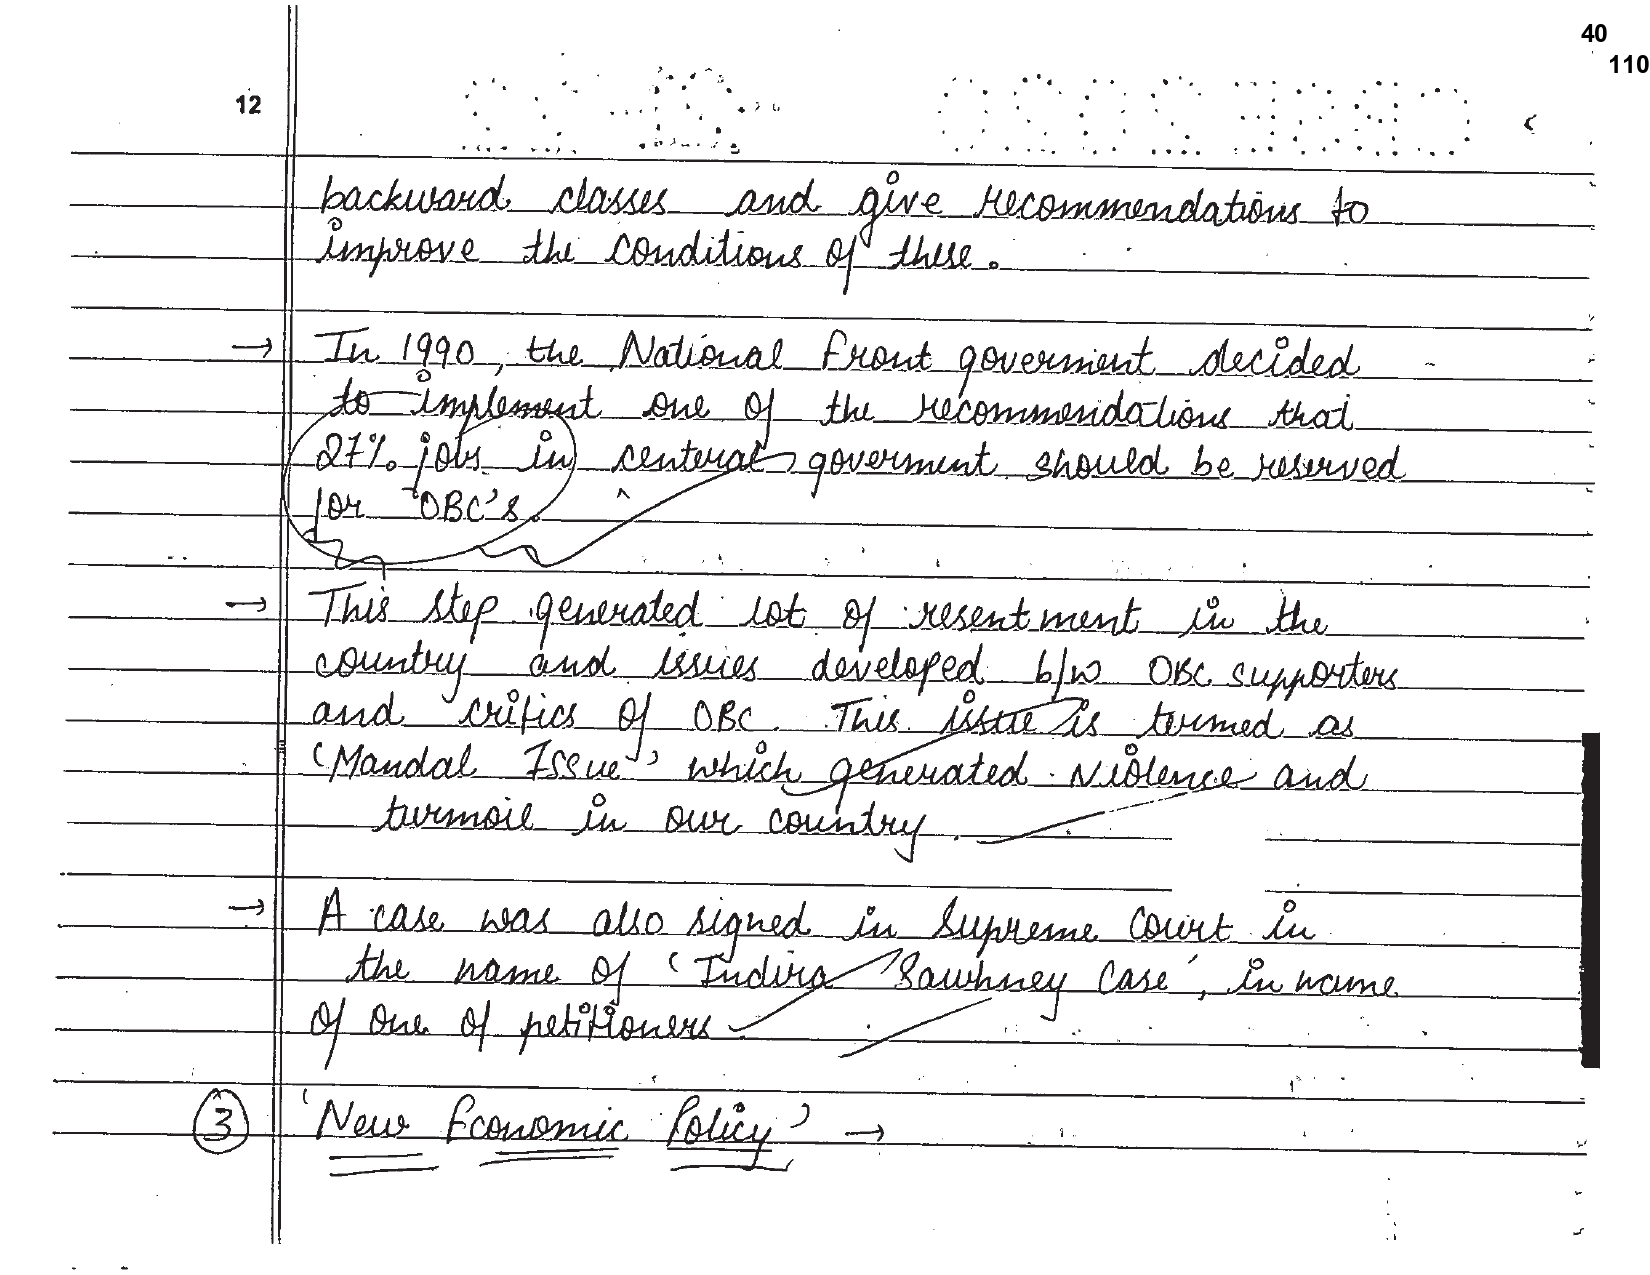 40
110
12
CBSE 2020
backward classes and give recommendations to
improve the conditions of these.
→ In 1990, the National Front goverment decided
to implement one of the recommendations that
27% jobs in centeral goverment should be reserved
for 'OBC's.
→ This step generated lot of resentment in the
country and issues developed b/w OBC supporters
and critics of OBC. This issue is termed as
'Mandal Issue' which generated violence and
turmoil in our country.
→ A case was also signed in Supreme Court in
the name of 'Indira Sawhney Case', in name
of one of petitioners
③ 'New Economic Policy' →